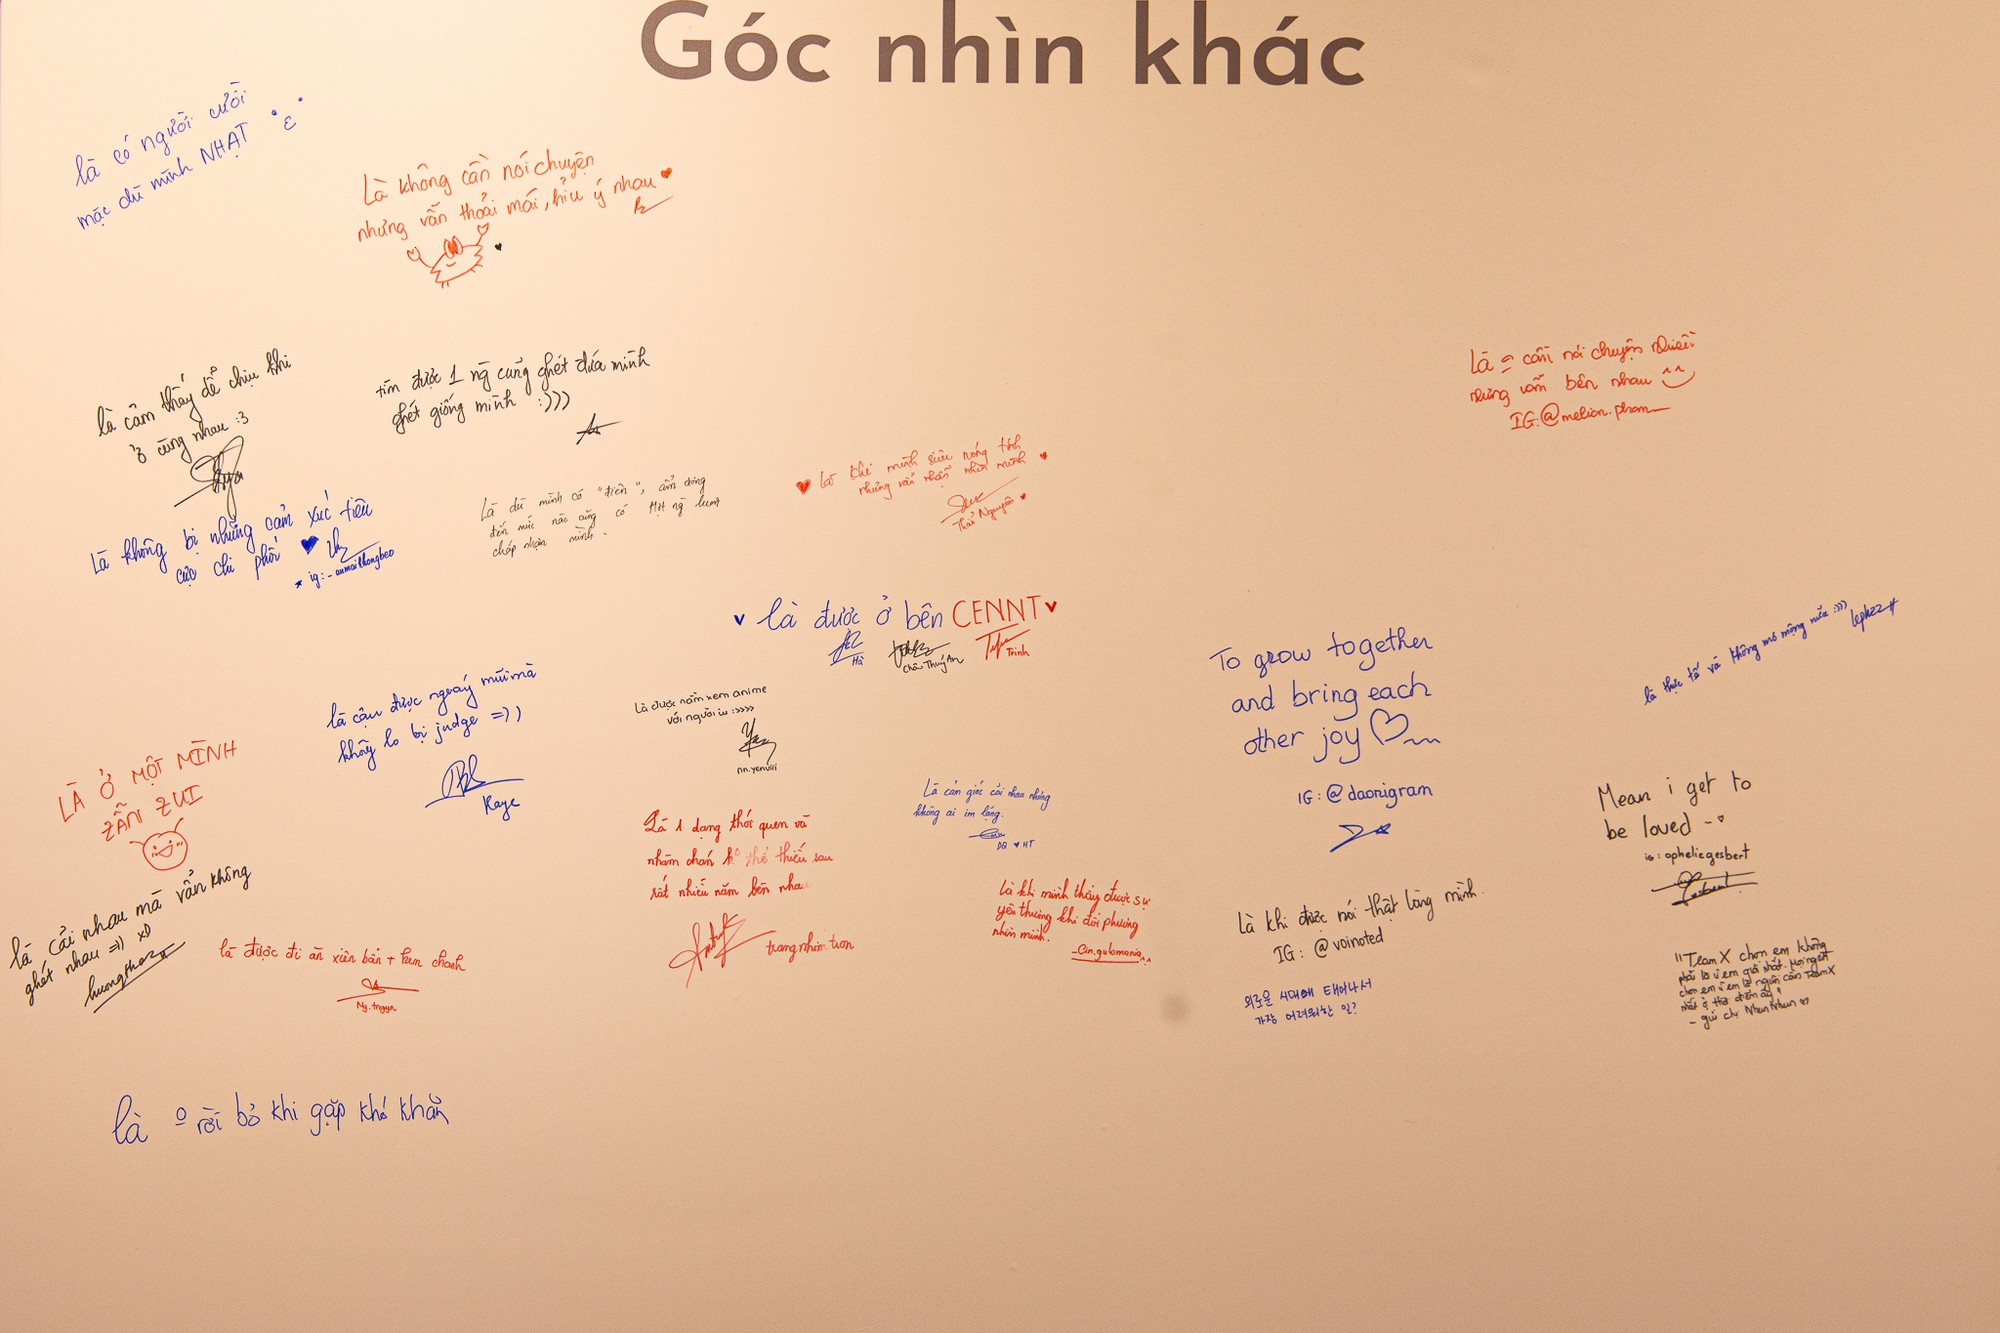 Góc nhìn khác
là có người cười
mặc dù mình NHẠT
Là không cần nói chuyện
nhưng vẫn thoải mái, hỉu ý nhau
là cảm thấy dễ chịu khi
ở cùng nhau :3
tìm được 1 ng cũng ghét đứa mình
ghét giống mình :)))
Là cần nói chuyện nhiều
nhưng vẫn bên nhau
IG:@melion.pham
là khi mình siêu nóng tính
nhưng vẫn nhẫn nhịn mình
Thảo Nguyên
Là dù mình có "điên", cảm động
đến mức nào cũng có một ng luôn
chấp nhận mình.
Là không bị những cảm xúc tiêu
cực chi phối
ig:
là được ở bên CENNT
Hà
Châu Thuý An
Trinh
To grow together
and bring each
other joy
IG: @daonigram
là thực tế và không mơ mộng nữa :)))
lephazz
là cậu được ngoáy mũi mà
không lo bị judge =))
Kaye
Là được nằm xem anime
với người iu :>>>>
nn.yenviii
LÀ Ở MỘT MÌNH
ZẪN ZUI
Là cảm giác cãi nhau nhưng
không ai im lặng.
DQ HT
Mean i get to
be loved
ig: opheliegesbert
Là 1 dạng thói quen và
nhàm chán ko thể thiếu sau
rất nhiều năm bên nhau
trangnhimtron
là cãi nhau mà vẫn không
ghét nhau =)) xD
là khi mình thấy được sự
yêu thương khi đối phương
nhìn mình.
là khi được nói thật lòng mình.
IG: @voinoted
là được đi ăn xiên bẩn + kem chanh
Ng.tngyn
외로운 시대에 태어나서
가장 어려워한 일?
"TeamX chọn em không
phải là vì em giỏi nhất. Mọi người
chọn em vì em là người cần TeamX
nhất ở thời điểm ấy"
- gửi chị Nhun Nhun
là o rời bỏ khi gặp khó khăn